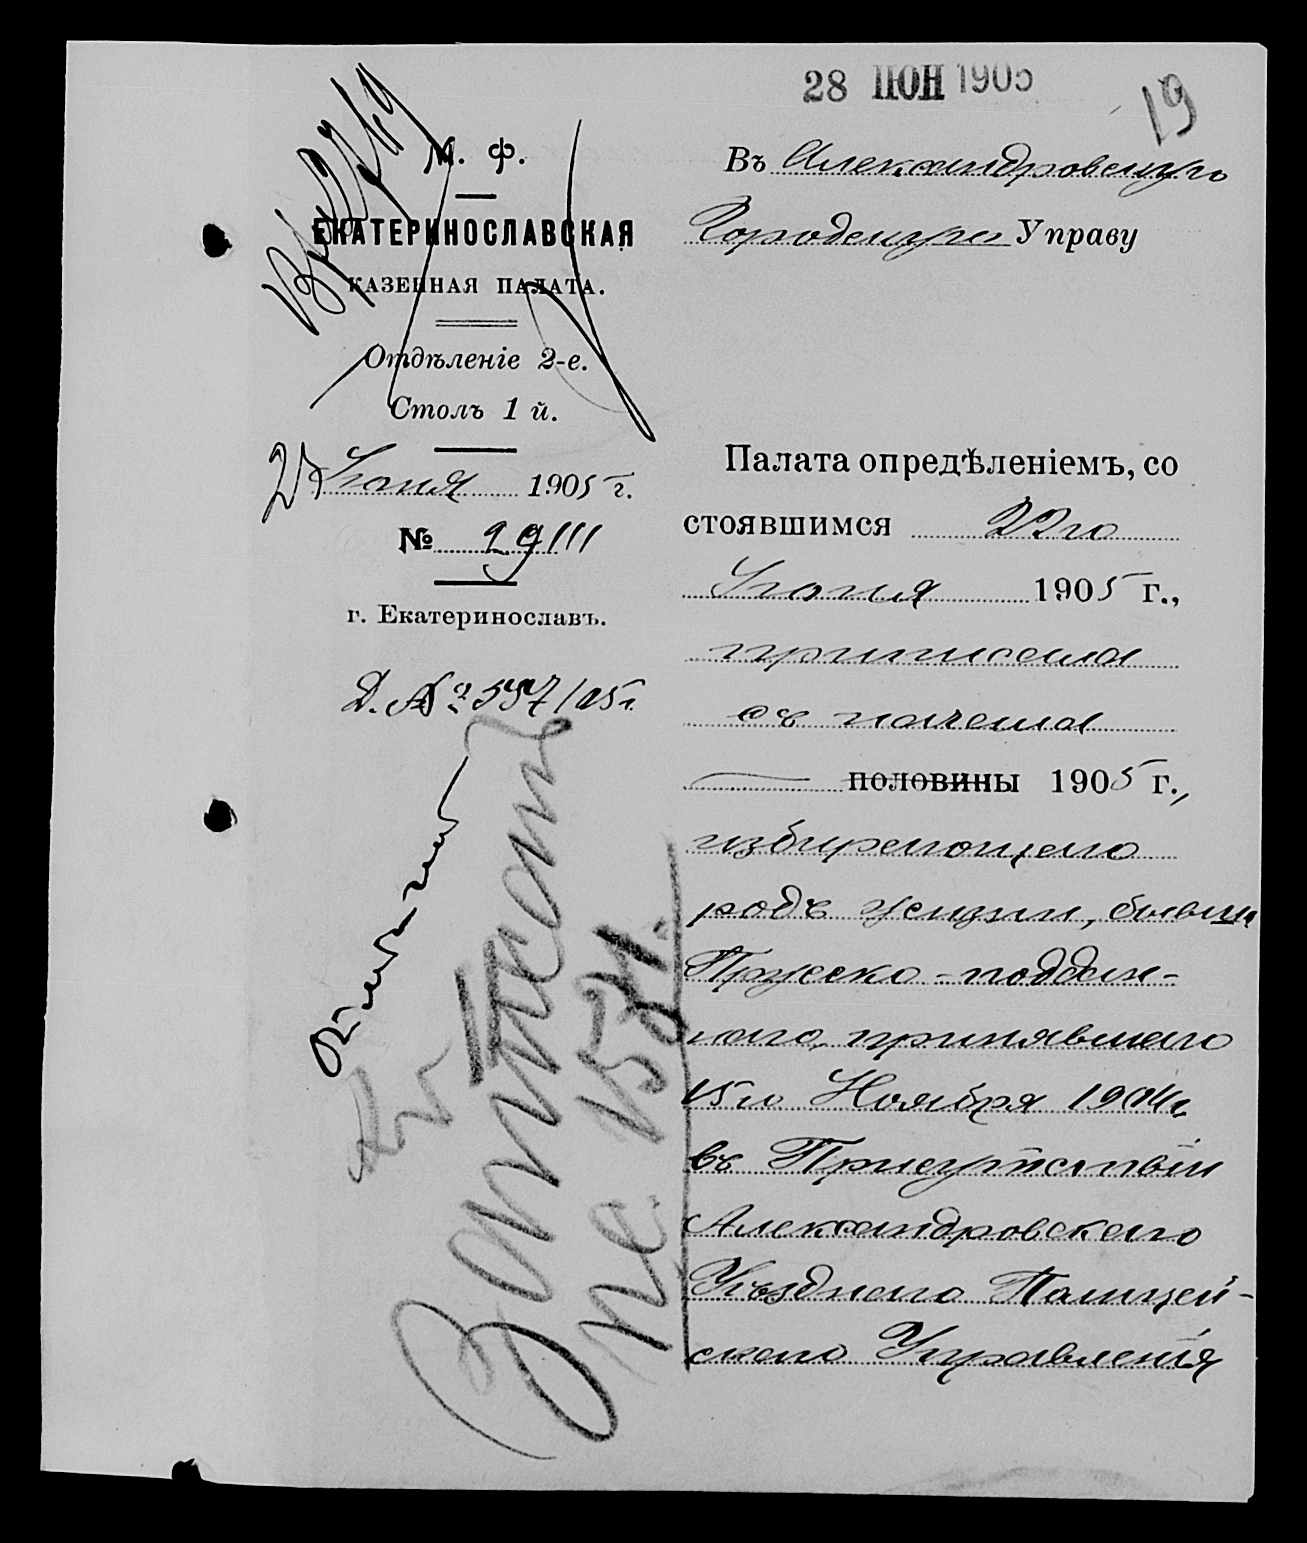 28 ІЮН 1905
19
М. Ф.
ЕКАТЕРИНОСЛАВСКАЯ
КАЗЕННАЯ ПАЛАТА.
Отдѣленіе 2-е.
Столъ 1 й.
Іюня 1905 г.
№ 29111
г. Екатеринославъ.
Д. № 557/05 г.
Въ Александровскую
Городскую Управу
Палата опредѣленіемъ, со
стоявшимся 22го
Іюня 1905 г.,
приписала
съ начала
половины 1905 г.,
избирающаго
родъ жизни, бывш
Прусско-поддан-
наго, принявшаго
15го Ноября 1904 г.
въ Присутствіи
Александровскаго
Уѣзднаго Полицей-
скаго Управленія